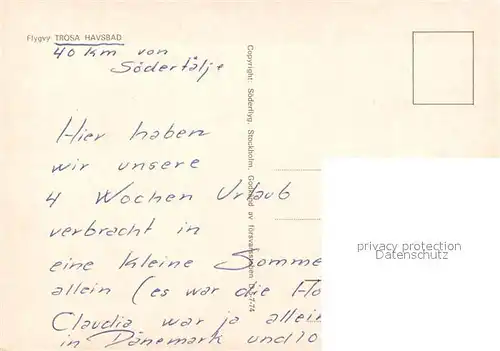 Flygvy TROSA HAVSBAD
40 km von
Södertälje
Hier haben
wir unsere
4 Wochen Urlaub
verbracht in
eine kleine Somme
allein (es war die Ho
Claudia war ja allein
in Dänemark und 10
Copyright: Söderflyg. Stockholm. Godkänd av försvarsstaben
privacy protection
Datenschutz